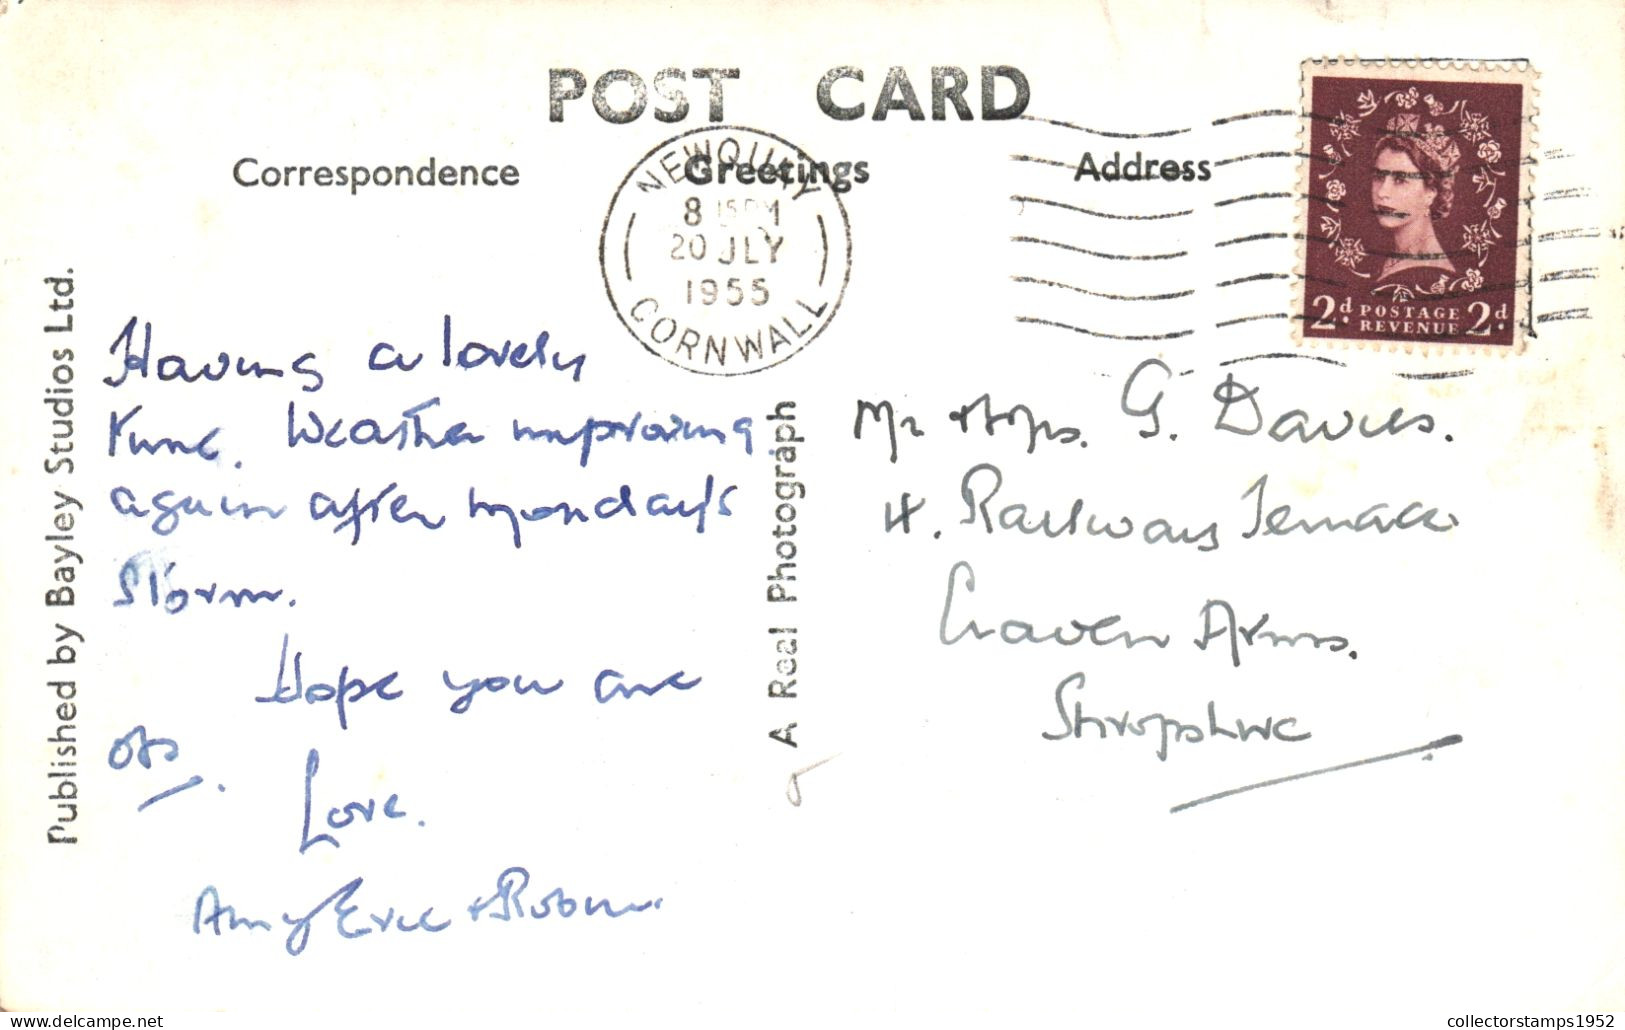 POST CARD
Correspondence
Greetings
Address
NEWQUAY
8 15 PM
20 JLY
1955
CORNWALL
2d POSTAGE 2d
REVENUE
Published by Bayley Studios Ltd.
A Real Photograph
Having a lovely
time. Weather improving
again after Monday's
storm.
Hope you are
Love.
Amy Eric + Robin.
Mr & Mrs. G. Davies.
4. Railway Terrace
Craven Arms.
Shropshire
delcampe.net
collectorstamps1952